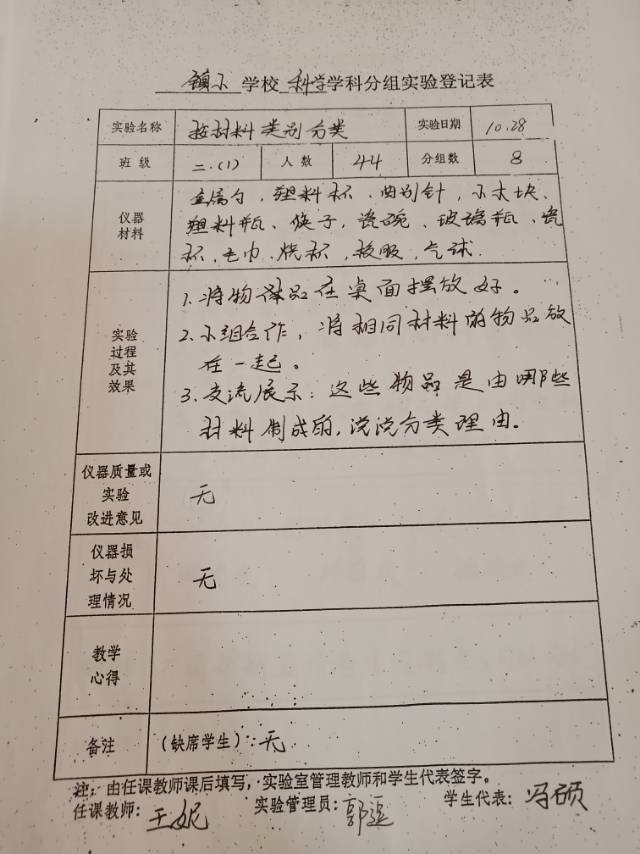 镇小 学校 科学 学科分组实验登记表
实验名称 按材料类别分类 实验日期 10.28
班 级 二.(1) 人 数 44 分组数 8
仪器
材料
金属勺,塑料杯、曲别针,小木块、
塑料瓶、筷子,瓷碗、玻璃瓶、瓷
杯,毛巾、烧杯,校服,气球.
实验
过程
及其
效果
1.将物体品在桌面摆放好。
2.小组合作,将相同材料的物品放
在一起。
3.交流展示:这些物品是由哪些
材料制成的,说说分类理由.
仪器质量或
实验
改进意见
无
仪器损
坏与处
理情况
无
教学
心得
备注 (缺席学生):无
注:由任课教师课后填写,实验室管理教师和学生代表签字。
任课教师:王妮 实验管理员:郭 学生代表:冯硕